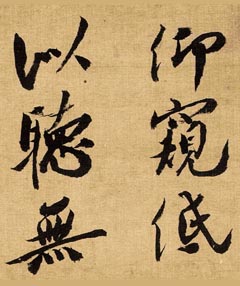 仰窺低
以聽無